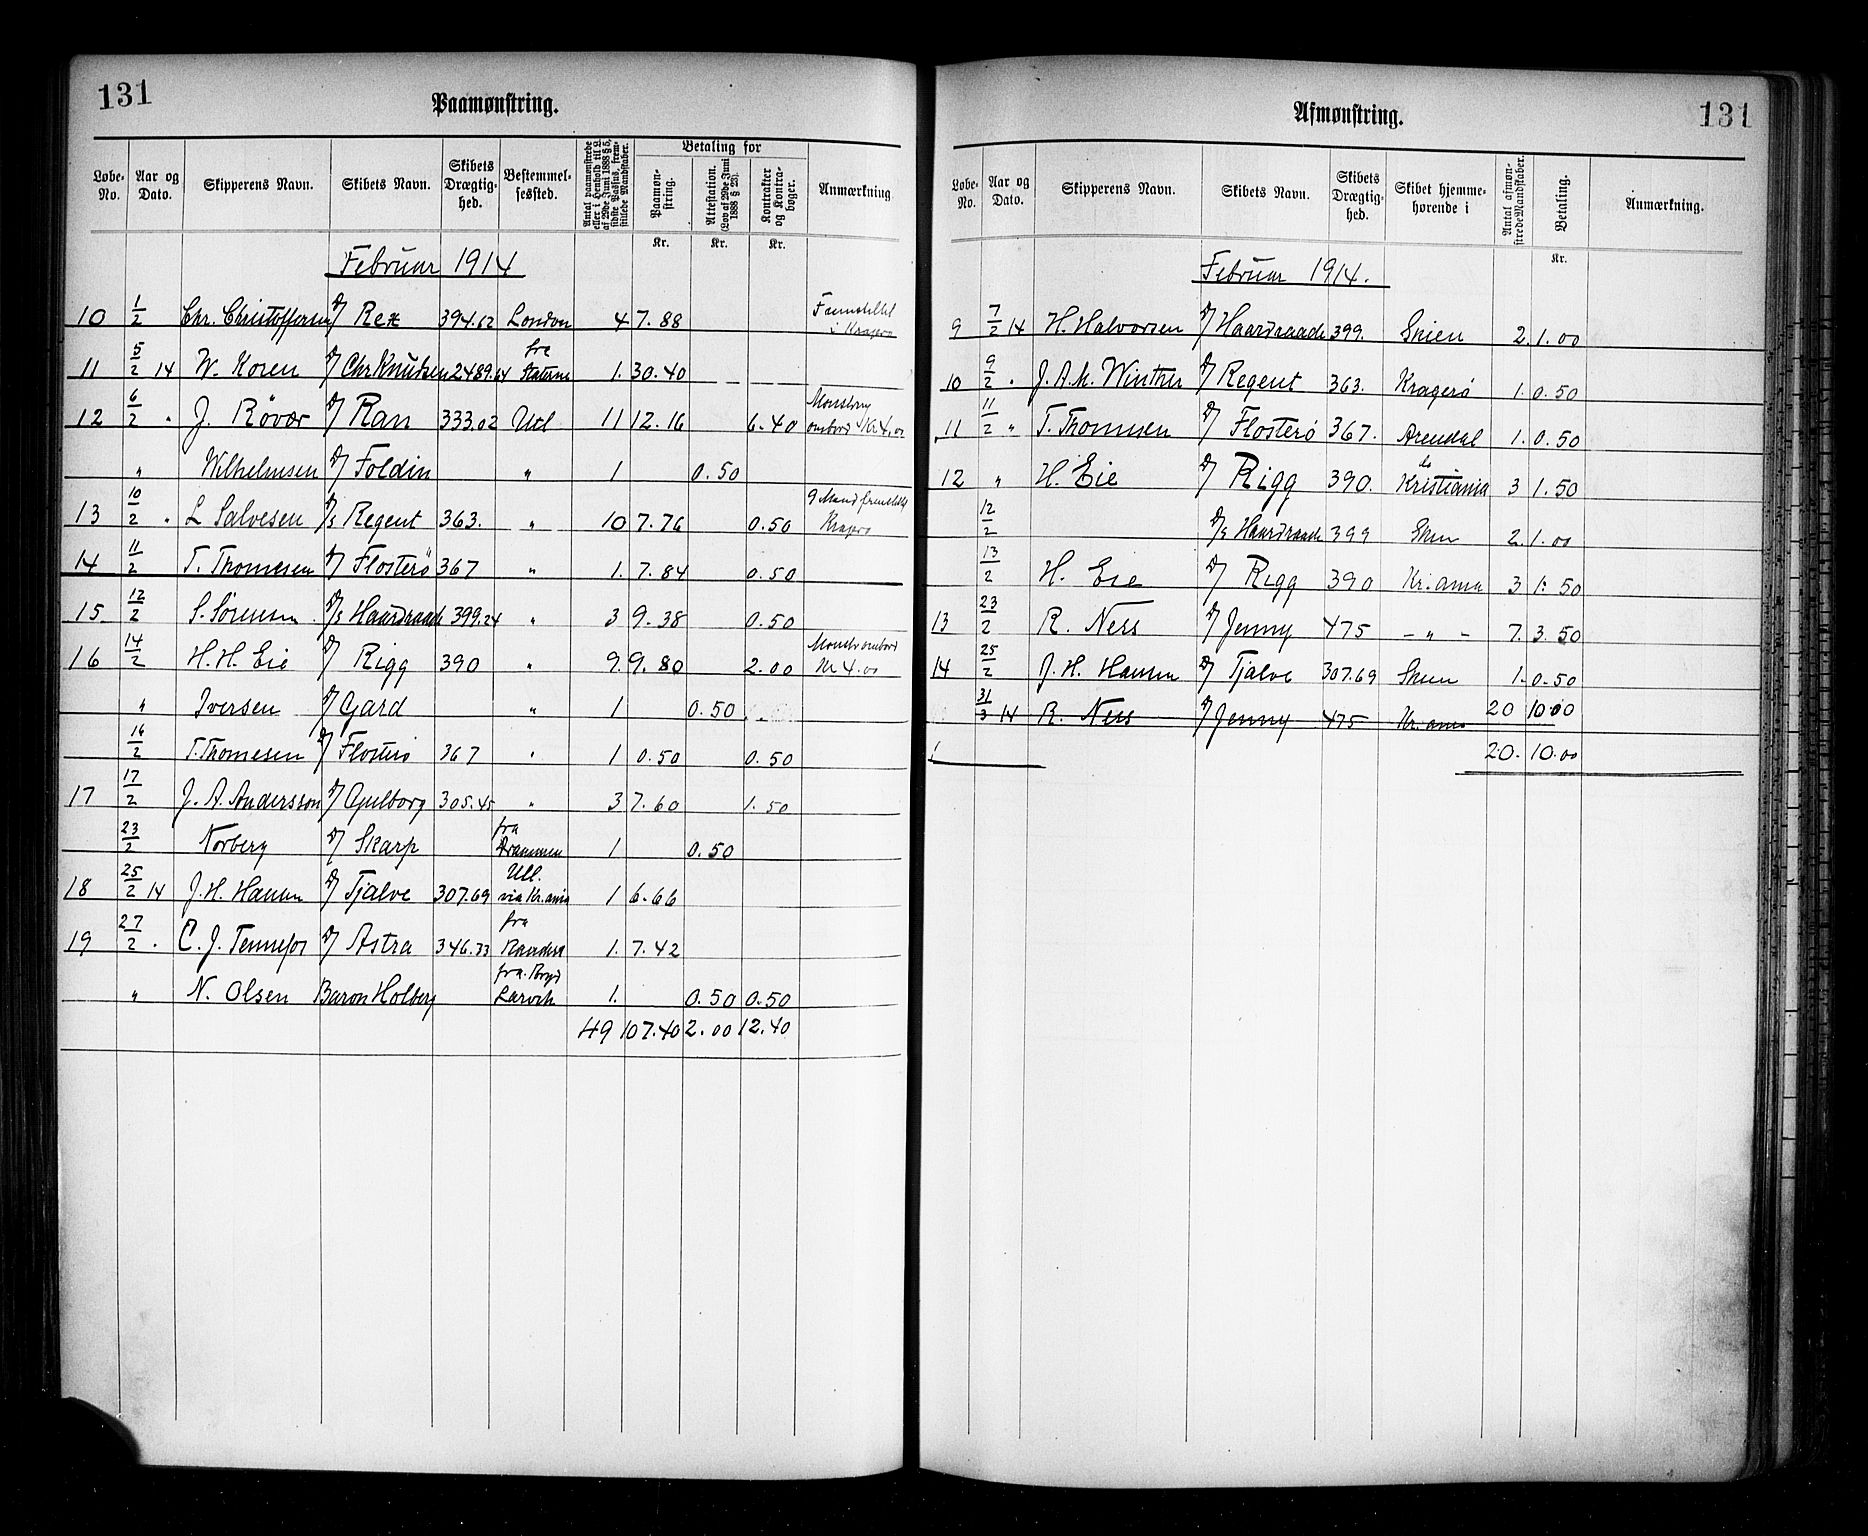 131
Paamønstring.
Løbe-No. Aar og Dato. Skipperens Navn. Skibets Navn. Skibets Drægtig-hed. Bestemmel-sessted. Antal paamønstrede eller i Henhold til L. af 29de Juni 1888 § 5, sidste Passus, frem-stillede Mandskaber. Betaling for Paamøn-string. Attestation. (Lov af 29de Juni 1888 § 23). Kontrakter og Kontra-bøger. Anmærkning
Kr. Kr. Kr.
Februar 1914
10 1/2 Chr. Christoffersen D/ Rex 394.62 London 4 7.88 Fremstillet i Kragerø
11 5/2 14 W. Koren D/ Chr Knudsen 2489.64 fra Staterne 1. 30.40
12 6/2 " J. Røvær D/ Ran 333.02 Utl 11 12.16 6.40 Mønstring ombord Kr 4.00
" Wilhelmsen D/ Foldin " 1 0.50
13 10/2 " L Salvesen D/S Regent 363. " 10 7.76 0.50 9 Mand fremstillet Kragerø
14 11/2 T. Thomesen D/ Flosterö 367 " 1. 7.84 0.50
15 12/2 S. Sörensen D/S Haardraade 399.24 " 3 9.38 0.50
16 14/2 H. H. Eie D/ Rigg 390 " 9. 9.80 2.00 Mønstr ombord Kr 4.00
" Iversen D/ Gard " 1 0.50
16/2 T. Thomesen D/ Flosterö 367 " 1 0.50 0.50
17 17/2 J. A. Andersson D/ Gulborg 305.45 " 3 7.60 1.50
23/2 Norberg D/ Skarp fra Drammen 1 0.50
18 25/2 14 J. H. Hansen D/ Tjalve 307.69 Utl. via Kr.ania 1 6.66
19 27/2 . C. J. Tennefos D/ Astra 346.33 fra Randers 1. 7.42
" N. Olsen Baron Holberg fra Larvik 1. 0.50 0.50
49 107.40 2.00 12.40
131
Afmønstring.
Løbe-No. Aar og Dato. Skipperens Navn. Skibets Navn. Skibets Drægtig-hed. Skibet hjemme-hørende i Antal afmøn-strede Mandskaber. Betaling. Anmærkning.
Kr.
Februar 1914.
9 7/2 14 H. Halvorsen D/ Haardraade 399. Skien 2. 1.00
10 9/2 . J. A. M. Winther D/ Regent 363. Kragerö 1. 0.50
11 11/2 " T. Thomesen D/ Flosterö 367. Arendal 1. 0.50
12 " H. Eie D/ Rigg 390. Kristiania 3 1.50
12/2 D/S Haardraade 399 Skien 2. 1.00
13/2 H. Eie D/ Rigg 390 Kr.ania 3 1.50
13 23/2 R. Ness D/ Jenny 475 – " – 7. 3.50
14 25/2 J. H. Hansen D/ Tjalve 307.69 Skien 1. 0.50
31/3 14 R. Ness D/ Jenny 475 Kr.ania 20 10.00
20. 10.00